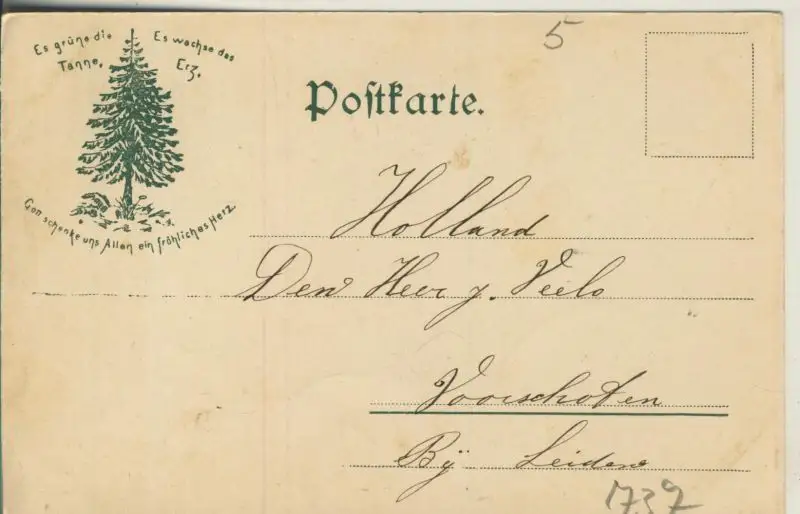 Es grüne die Tanne.
Es wachse das Erz.
Gott schenke uns Allen ein fröhliches Herz
5
Postkarte.
Holland
Den Heer J. Veelo
Voorschoten
By Leiden
1737